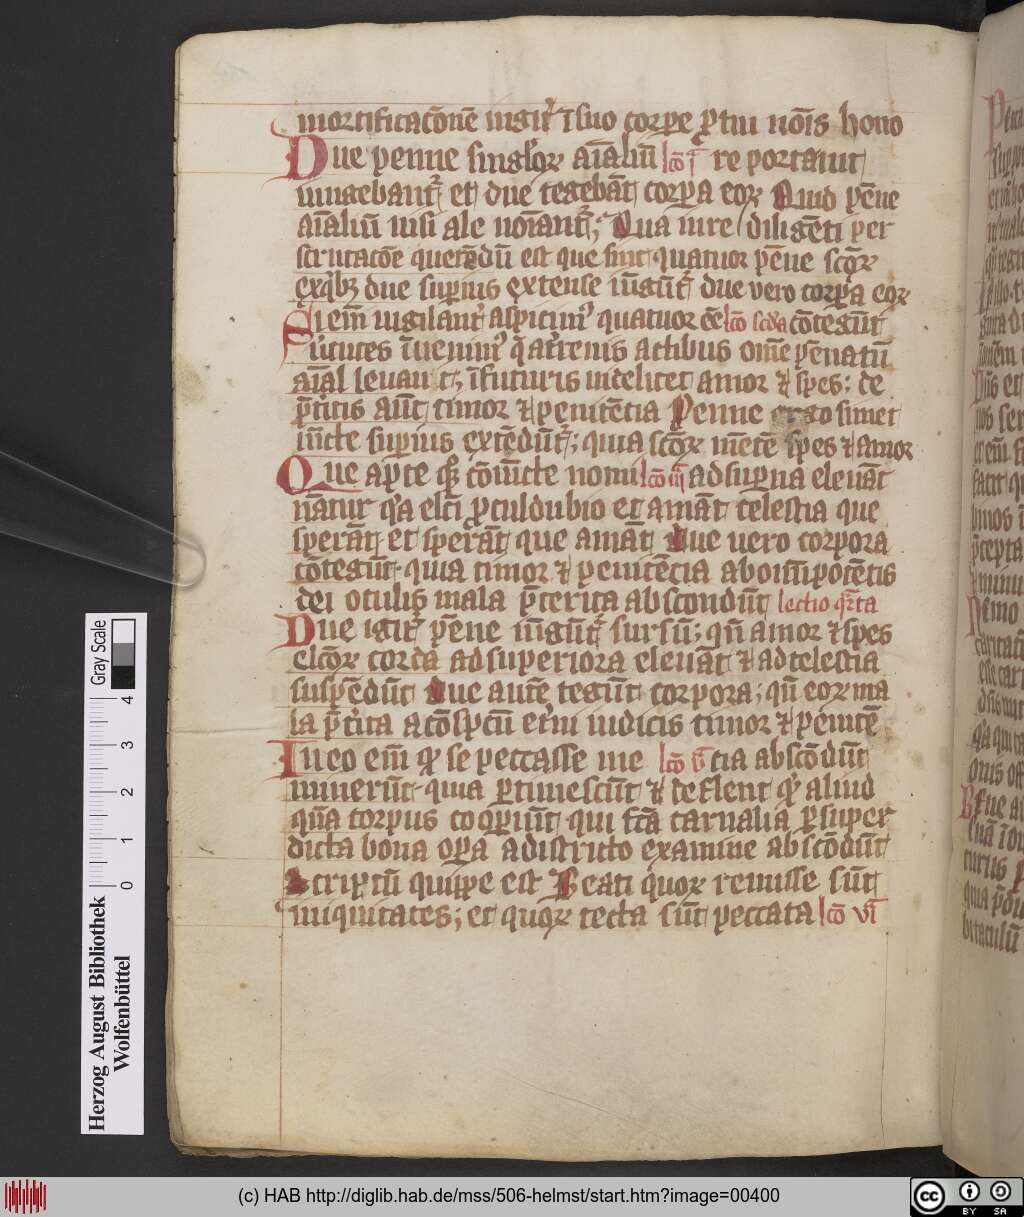 mortificac̄onē iugit᷑ ī suo corpe p̱tm nōis hono
Due penne singl'oꝝ aīaliū lc̄o ī re portam᷑
iungebant᷑ et due tegebāt corpa eoꝝ Quid pēne
aīaliū nisi ale noīant᷑; Qua iure diligēti per
scrutac̄oe querēdū est que sint quatuor pēne sc̄oꝝ
ex qͥbꝫ due suꝑius extense iūgūt᷑ due vero corpa eoꝝ
Si em̄ vigilant᷑ aspicimꝰ quatuor ēē lc̄o scd̄a cōtegūt
uirtutes īuenimꝰ q̄ a t᷑renis actibus om̄e pēnatū
aīal leuant; ī futuris videlicet amor ⁊ spes: de
p̄t᷑itis aūt timor ⁊ penitēcia Penne ergo simet
iūcte suꝑius extēdūt᷑; quia sc̄oꝝ mētē spes ⁊ amor
Que aꝑte qͦꝫ cōiūcte nomi lc̄o iii ad suꝑna eleuāt
nātur qͥa elc̄i ꝓculdubio et amāt celestia que
sperāt et sperāt que amāt Due uero corpora
cōtegūt quia timor ⁊ penitēcia ab om̄ipotētis
dei oculis mala p̄terita abscondūt lectio qͣrta
Due igit᷑ pēne iūgūt᷑ sursū; qn̄ amor ⁊ spes
elc̄oꝝ corda ad superiora eleuāt ⁊ ad celestia
suspēdūt Due autē tegūt corpora; qn̄ eoꝝ ma
la p̄t᷑ita a cōspc̄u et᷑ni iudicis timor ⁊ penitē
In eo em̄ qͦ se peccasse me lc̄o v̄ cia abscōdūt
minerūt quia ꝑtimescūt ⁊ deflent qͥd aliud
qͣ̄ corpus cooꝑiūt qui fc̄a carnalia ꝑ super
dicta bona oꝑa a districto examine abscōdūt
Scriptū quippe est Beati quoꝝ remisse sūt
iniquitates; et quoꝝ tecta sūt peccata lc̄o vī
Herzog August Bibliothek
Wolfenbüttel
0 1 2 3 4
Gray Scale
(c) HAB http://diglib.hab.de/mss/506-helmst/start.htm?image=00400
cc BY SA